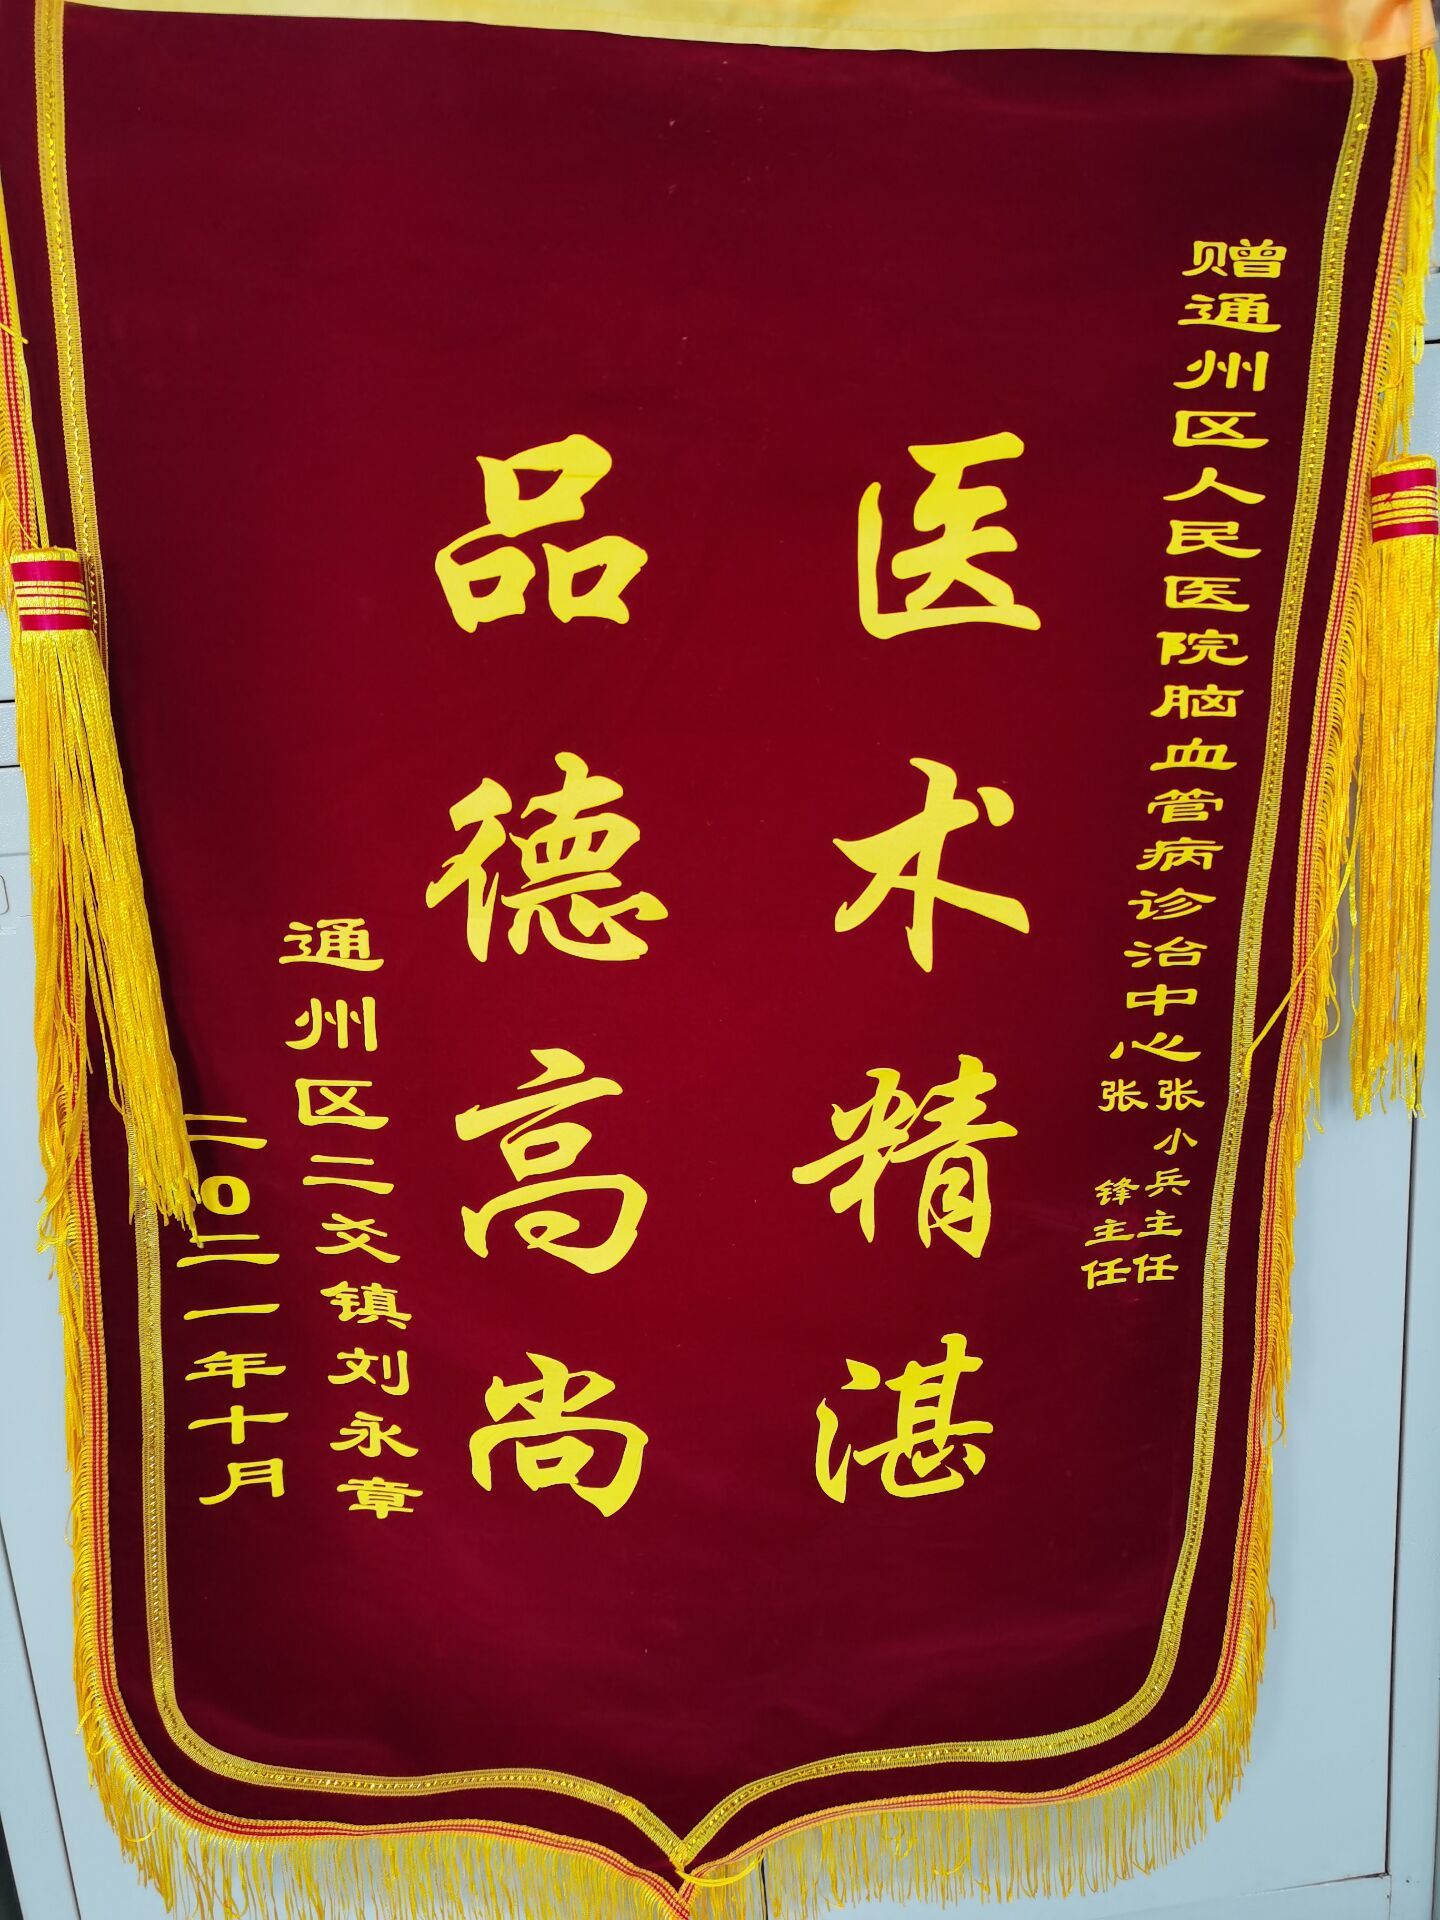 赠通州区人民医院脑血管病诊治中心张小兵主任
张锋主任
医术精湛
品德高尚
通州区二爻镇刘永章
二0二一年十月